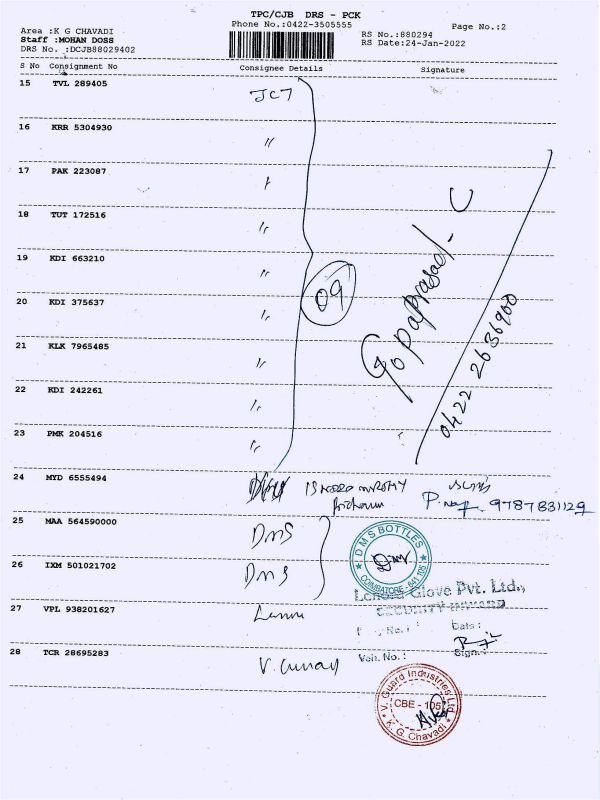 TPC/CJB DRS - PCK
Phone No.:0422-3505555
Page No.:2
Area :K G CHAVADI
Staff :MOHAN DOSS
DRS No. :DCJB88029402
RS No.:880294
RS Date:24-Jan-2022
S No Consignment No Consignee Details Signature
15 TVL 289405 JCT
16 KRR 5304930 〃
17 PAK 223087
18 TUT 172516 〃
19 KDI 663210 〃
09
20 KDI 375637 〃
21 KLK 7965485 〃
22 KDI 242261 〃
23 PMK 204516 〃
Gopaprasad - C
0422 2636900
24 MYD 6555494
9787831129
25 MAA 564590000 DMS
26 IXM 501021702 DMS
DMS BOTTLES
COIMBATORE - 641 105
Glove Pvt. Ltd.,
SECURITY INWARD
27 VPL 938201627
No.: Date:
Veh. No.: Sign.:
28 TCR 28695283
V. Guard Industries Ltd
CBE - 105
K. G. Chavadi